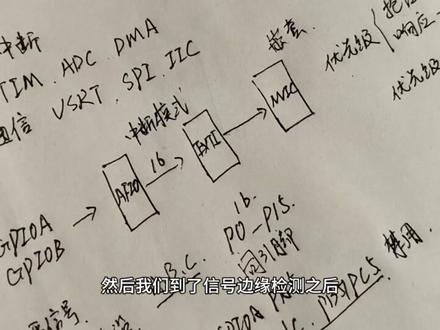 中断
TIM . ADC . DMA
通信 USRT . SPI . IIC
嵌套
优先级
响应
优先级
中断模式
NVIC
EXTI
16
AFIO
GPIOA
GPIOB
16.
P0-P15
同引脚
禁用
然后我们到了信号边缘检测之后
B.C.
PB5 PC5
信号